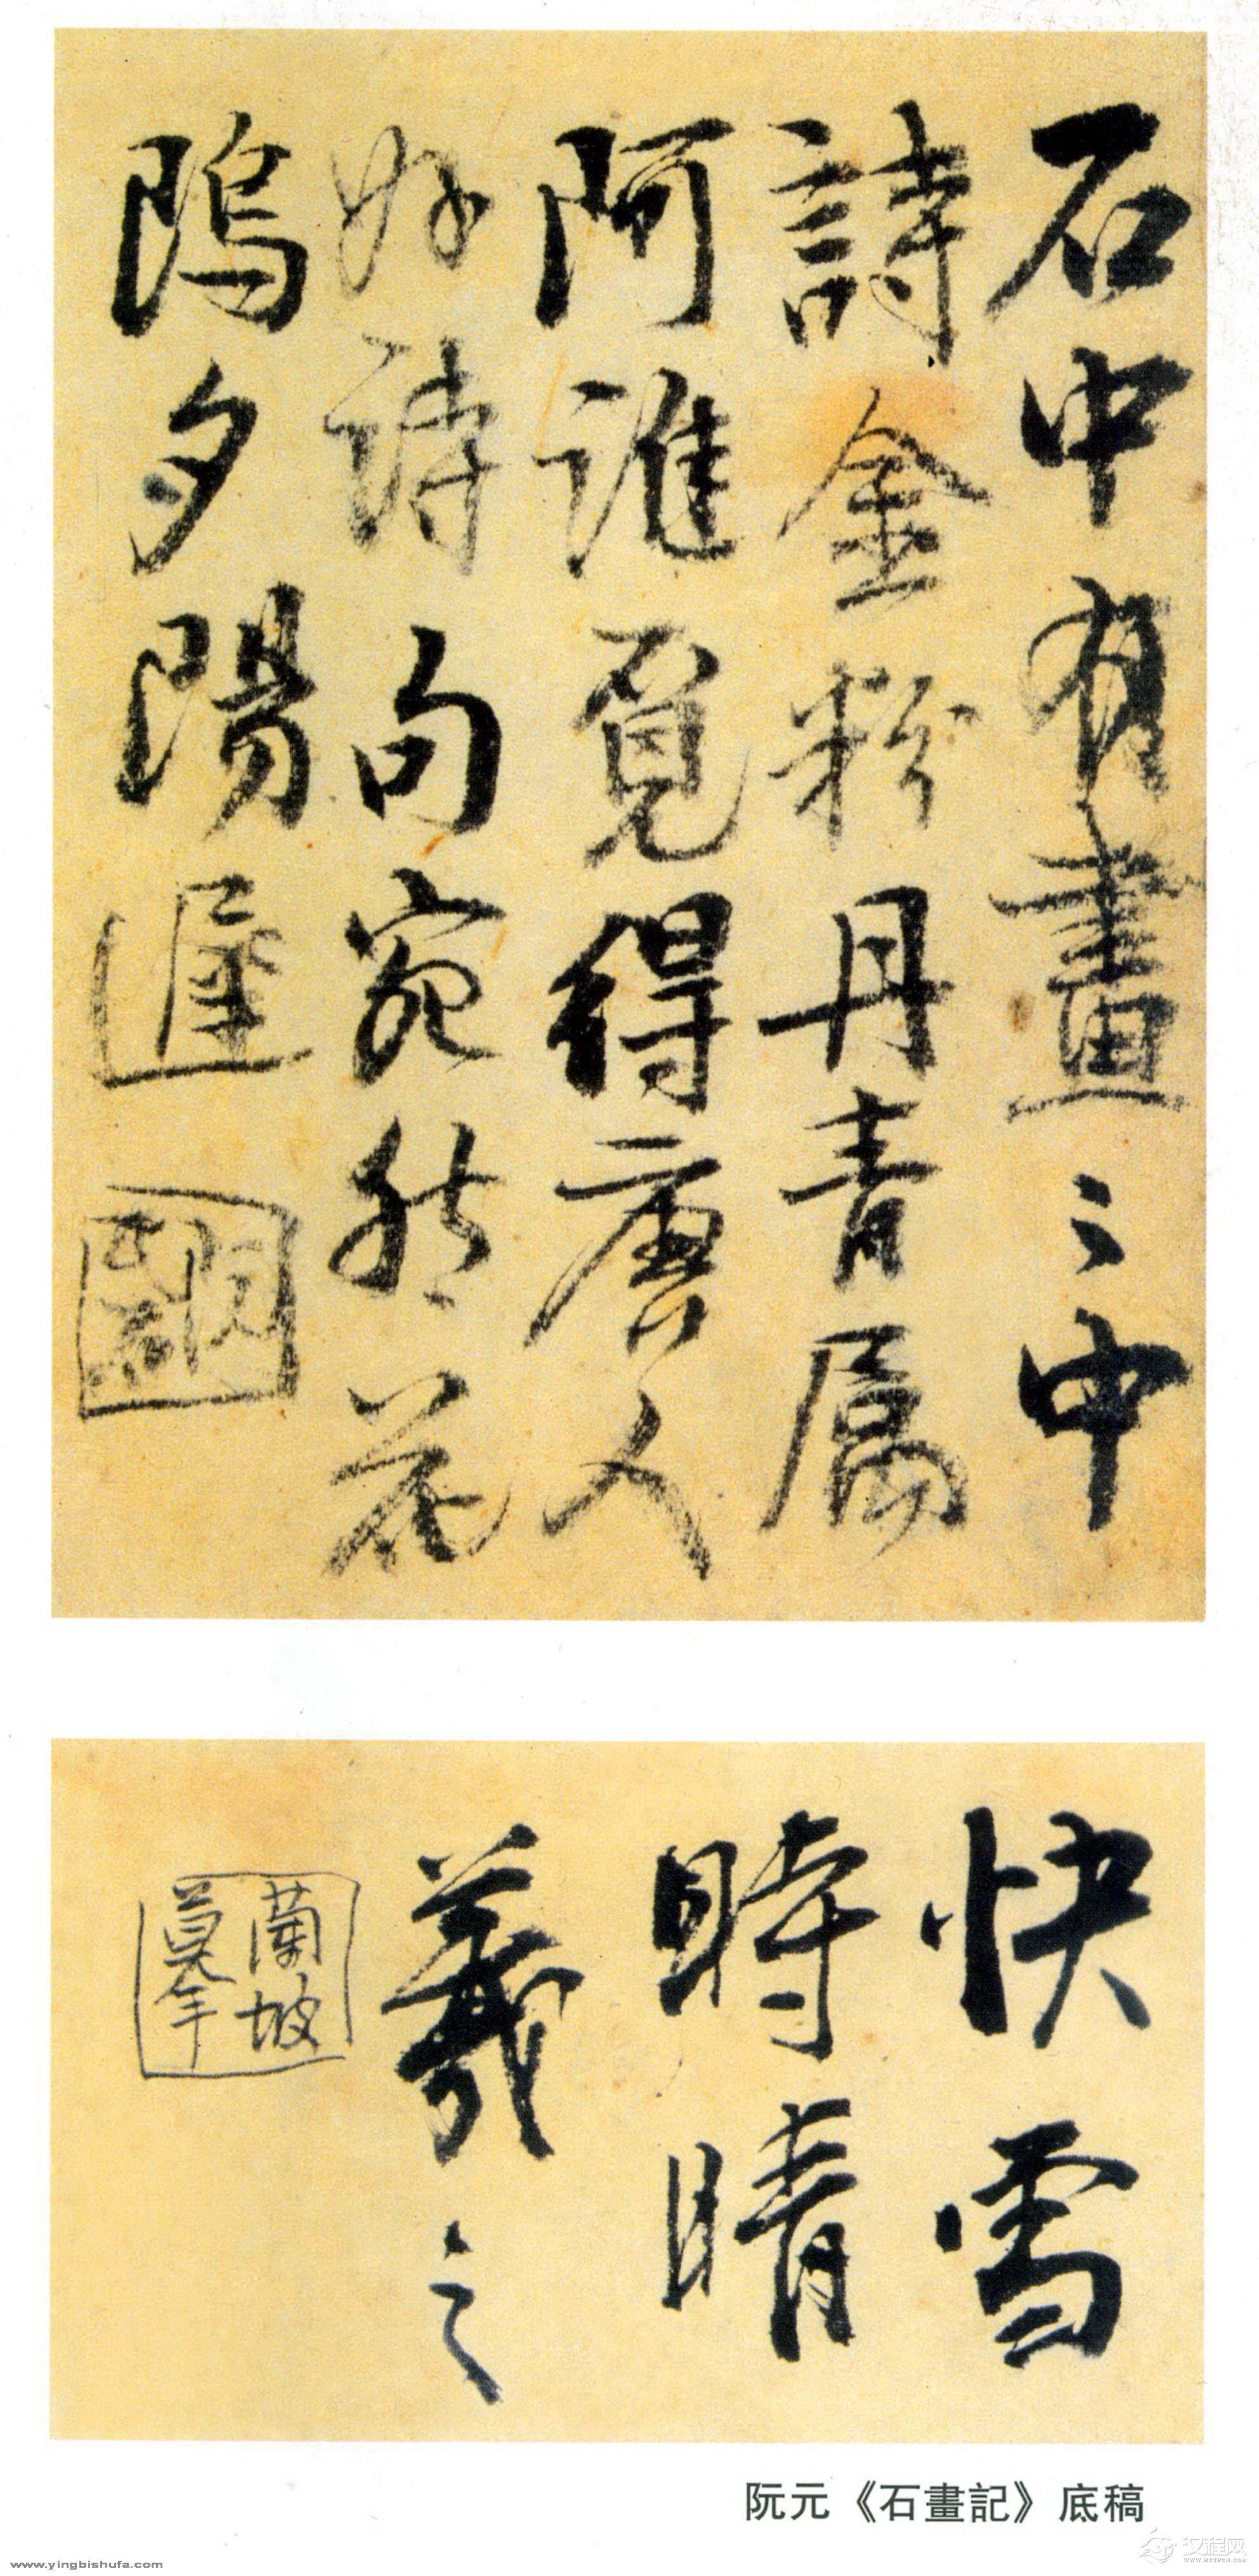 石中有畫〻中
詩金粉丹青屬
阿誰覓得唐人
好詩句宛然花
隖夕陽遲
快雪
時晴
羲之
蘭坡
摹
阮元《石畫記》底稿
www.yingbishufa.com
汉程网
WWW.HTTPCN.COM